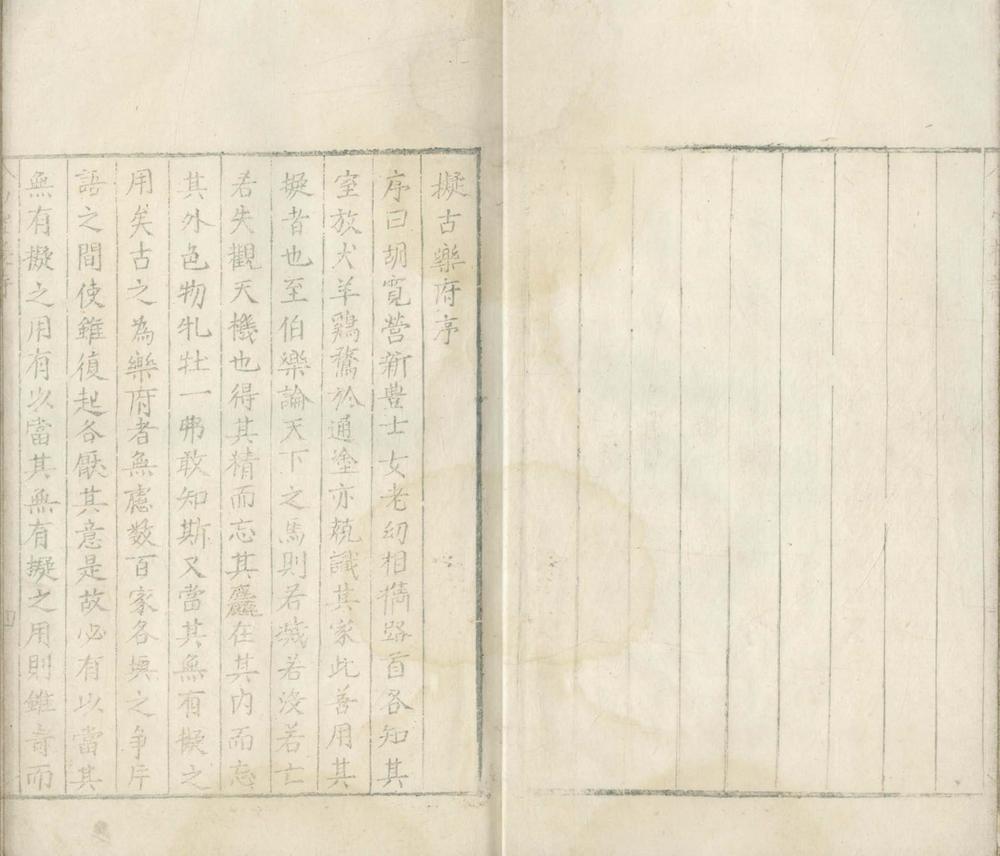 擬古樂府序
序曰胡寛營新豊士女老㓜相擕路首各知其
室放犬羊鷄鶩於通塗亦競識其家此善用其
擬者也至伯樂論天下之馬則若滅若没若亡
若失觀天機也得其精而忘其麤在其内而忘
其外色物牝牡一弗敢知斯又當其無有擬之
用矣古之為樂府者無慮数百家各與之争片
語之間使雖復起各厭其意是故必有以當其
無有擬之用有以當其無有擬之用則雖奇而